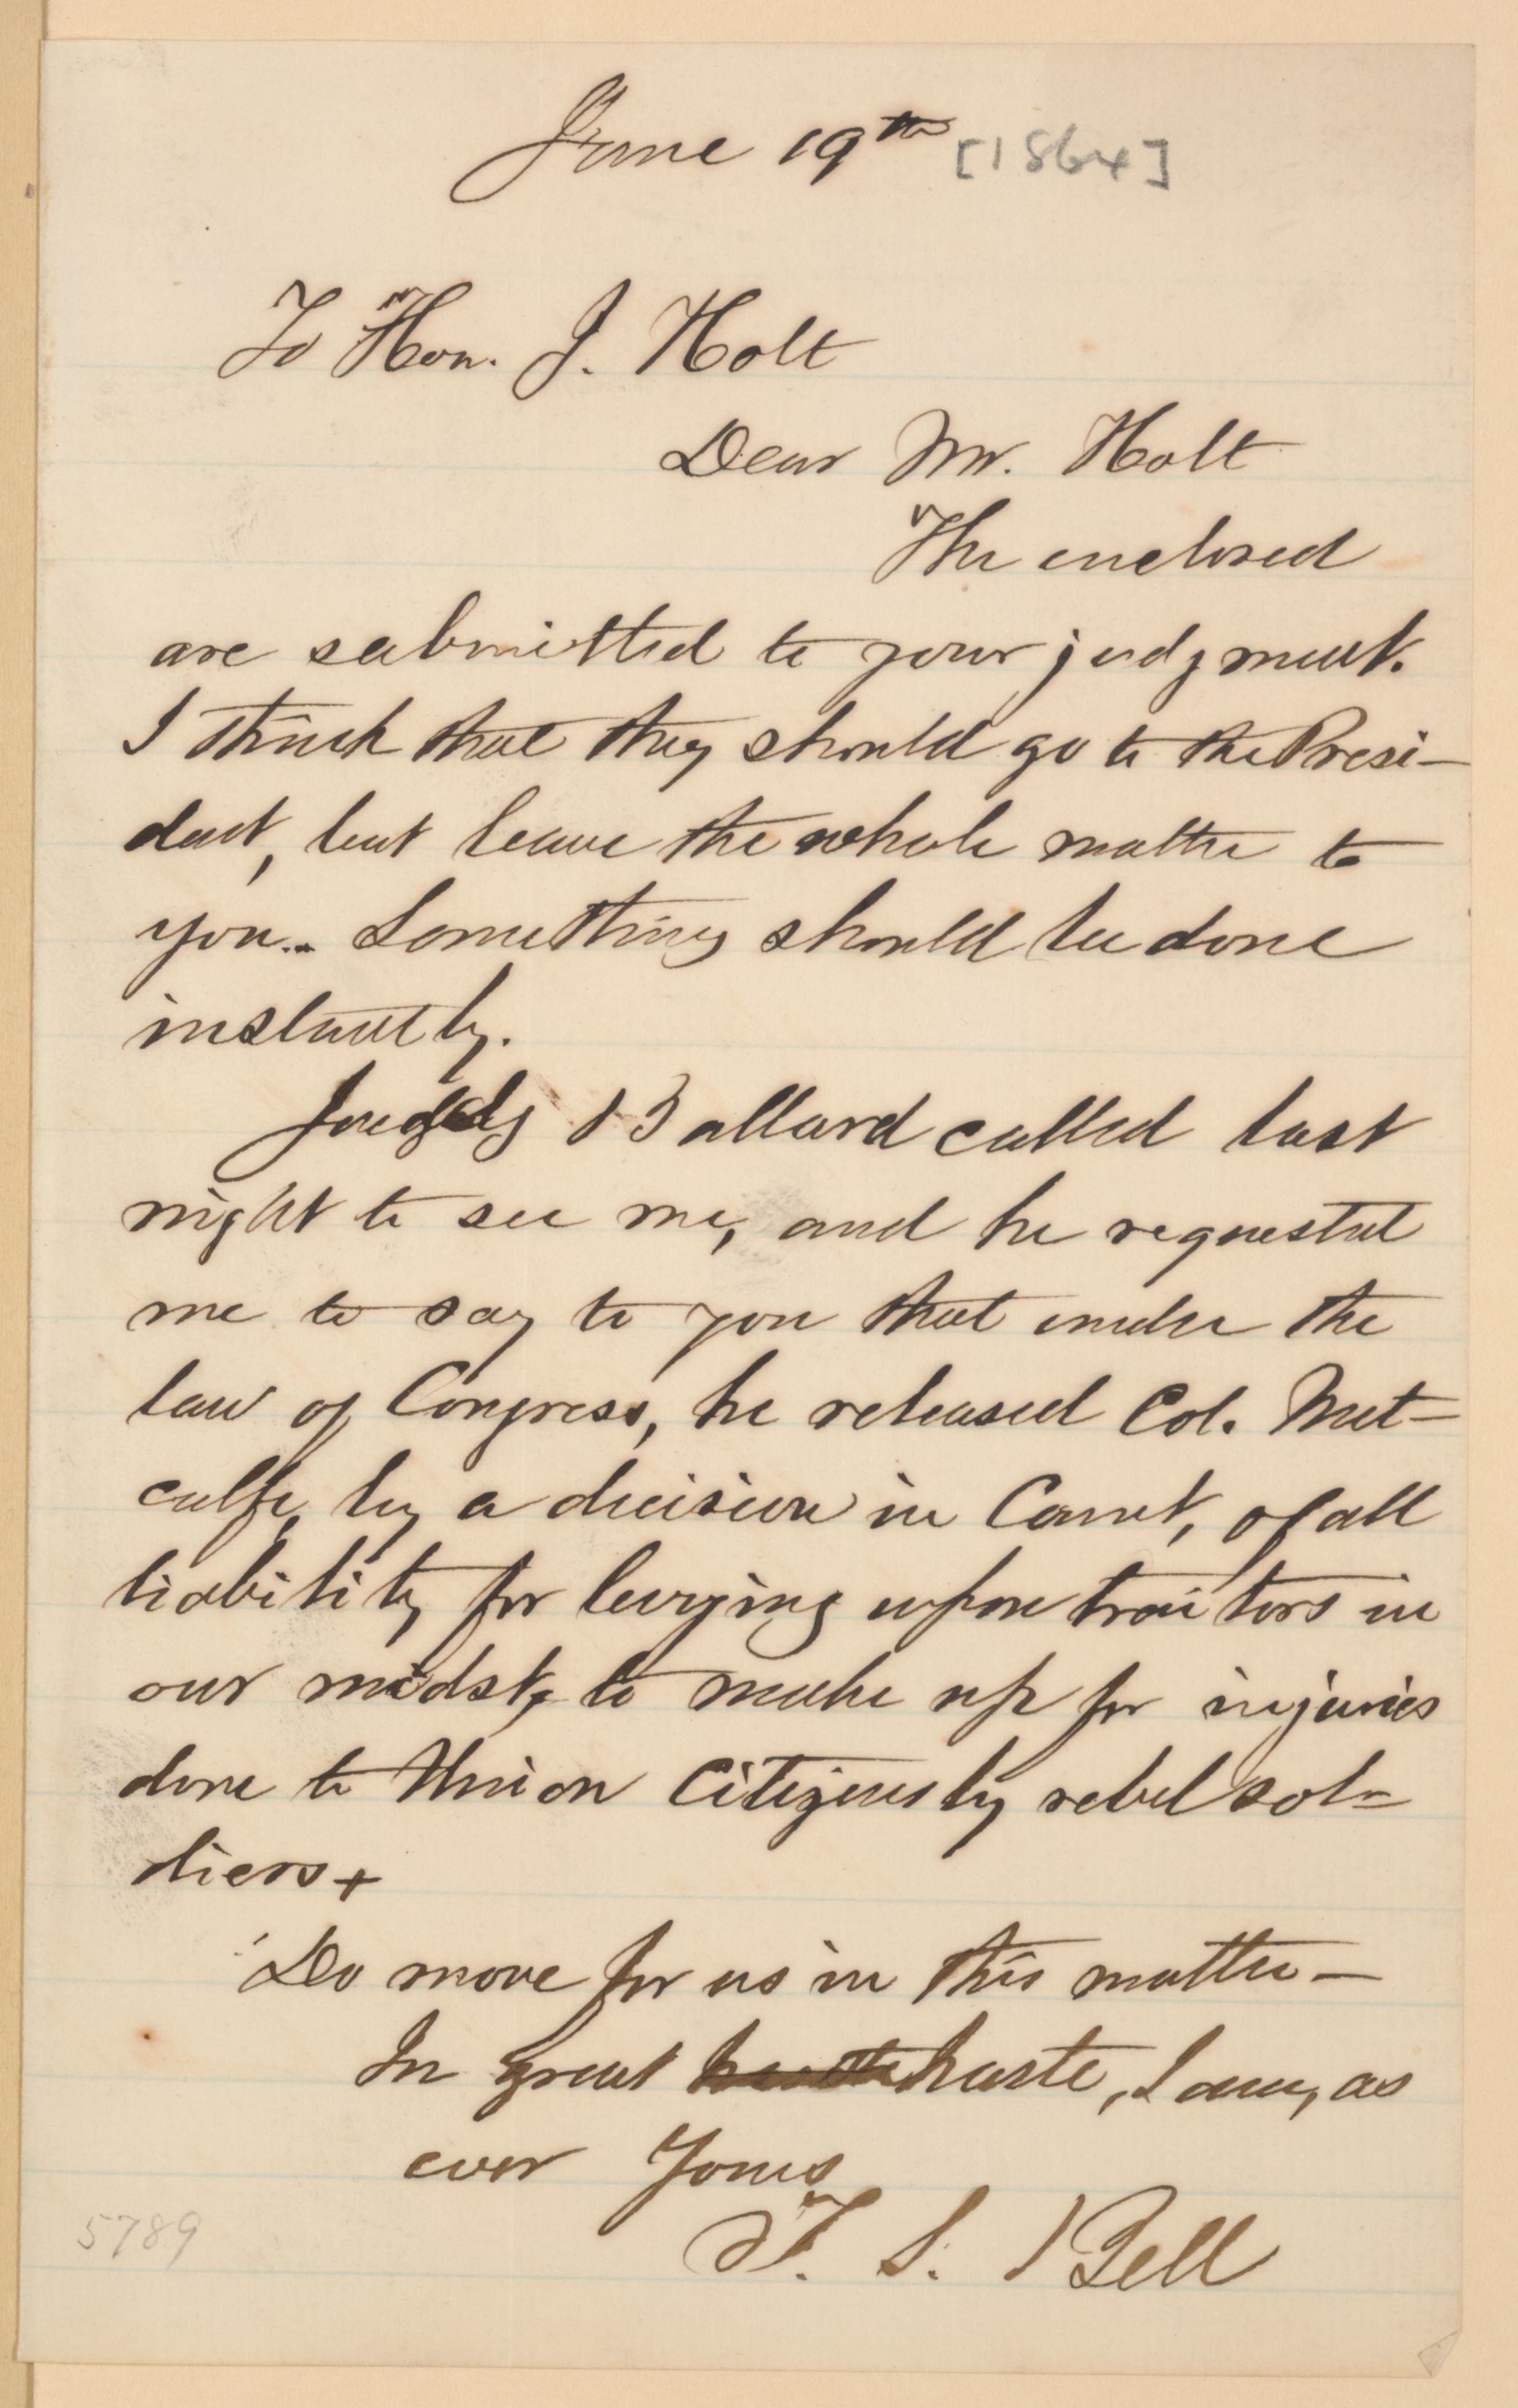 June 19th [1864]
To Hon. J. Holt
Dear Mr. Holt
The enclosed
are submitted to your judgment.
I think that they should go to the Presi-
dent, but leave the whole matter to
you. Something should be done
instantly.
Judg Ballard called last
night to see me, and he requested
me to say to you that under the
law of Congress, he released Col. Met-
calfe, by a decision in Court, of all
liability for levying upon traitors in
our midst, to make up for injuries
done to Union Citizens by rebel sol-
diers+
Do move for us in this matter-
In great haste, I am, as
ever Yours
T. S. Bell
5789